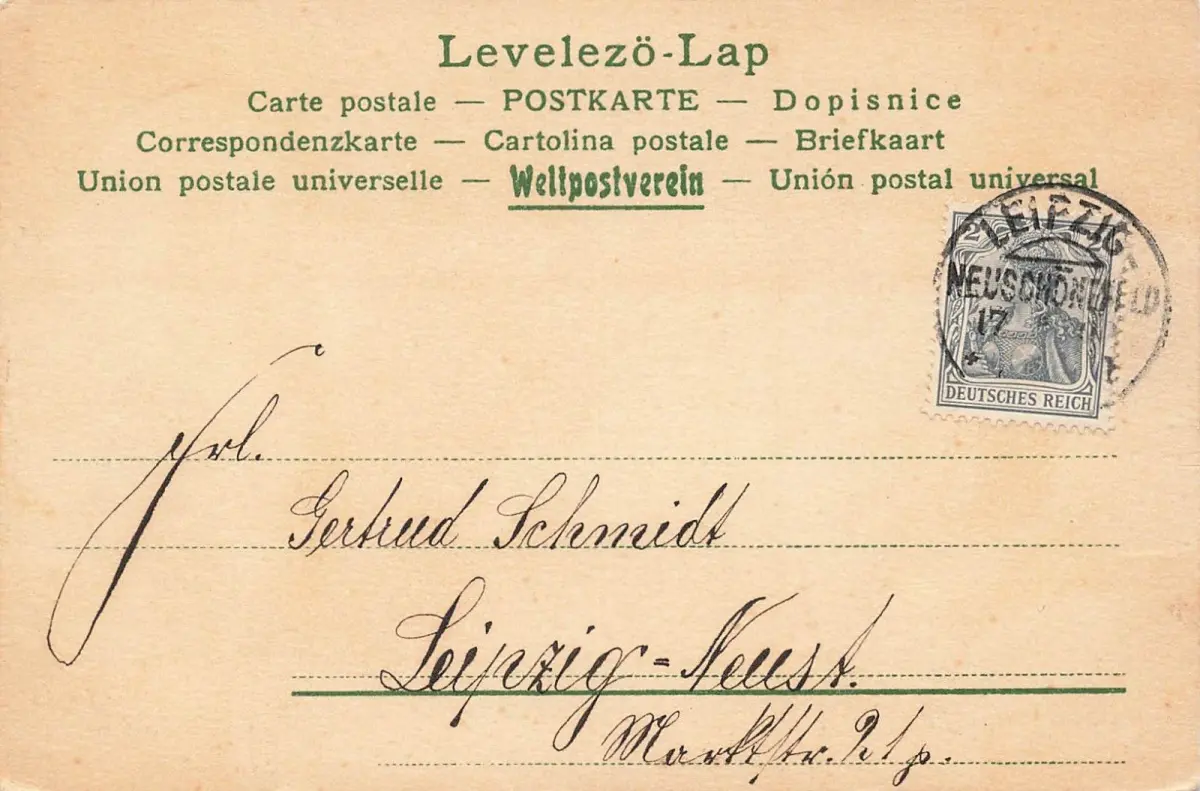 Levelezö-Lap
Carte postale — POSTKARTE — Dopisnice
Correspondenzkarte — Cartolina postale — Briefkaart
Union postale universelle — Weltpostverein — Unión postal universal
LEIPZIG
NEUSCHÖNEFELD
17
2
DEUTSCHES REICH
Frl.
Gertrud Schmidt
Leipzig-Neust.
Marktstr. 21 p.